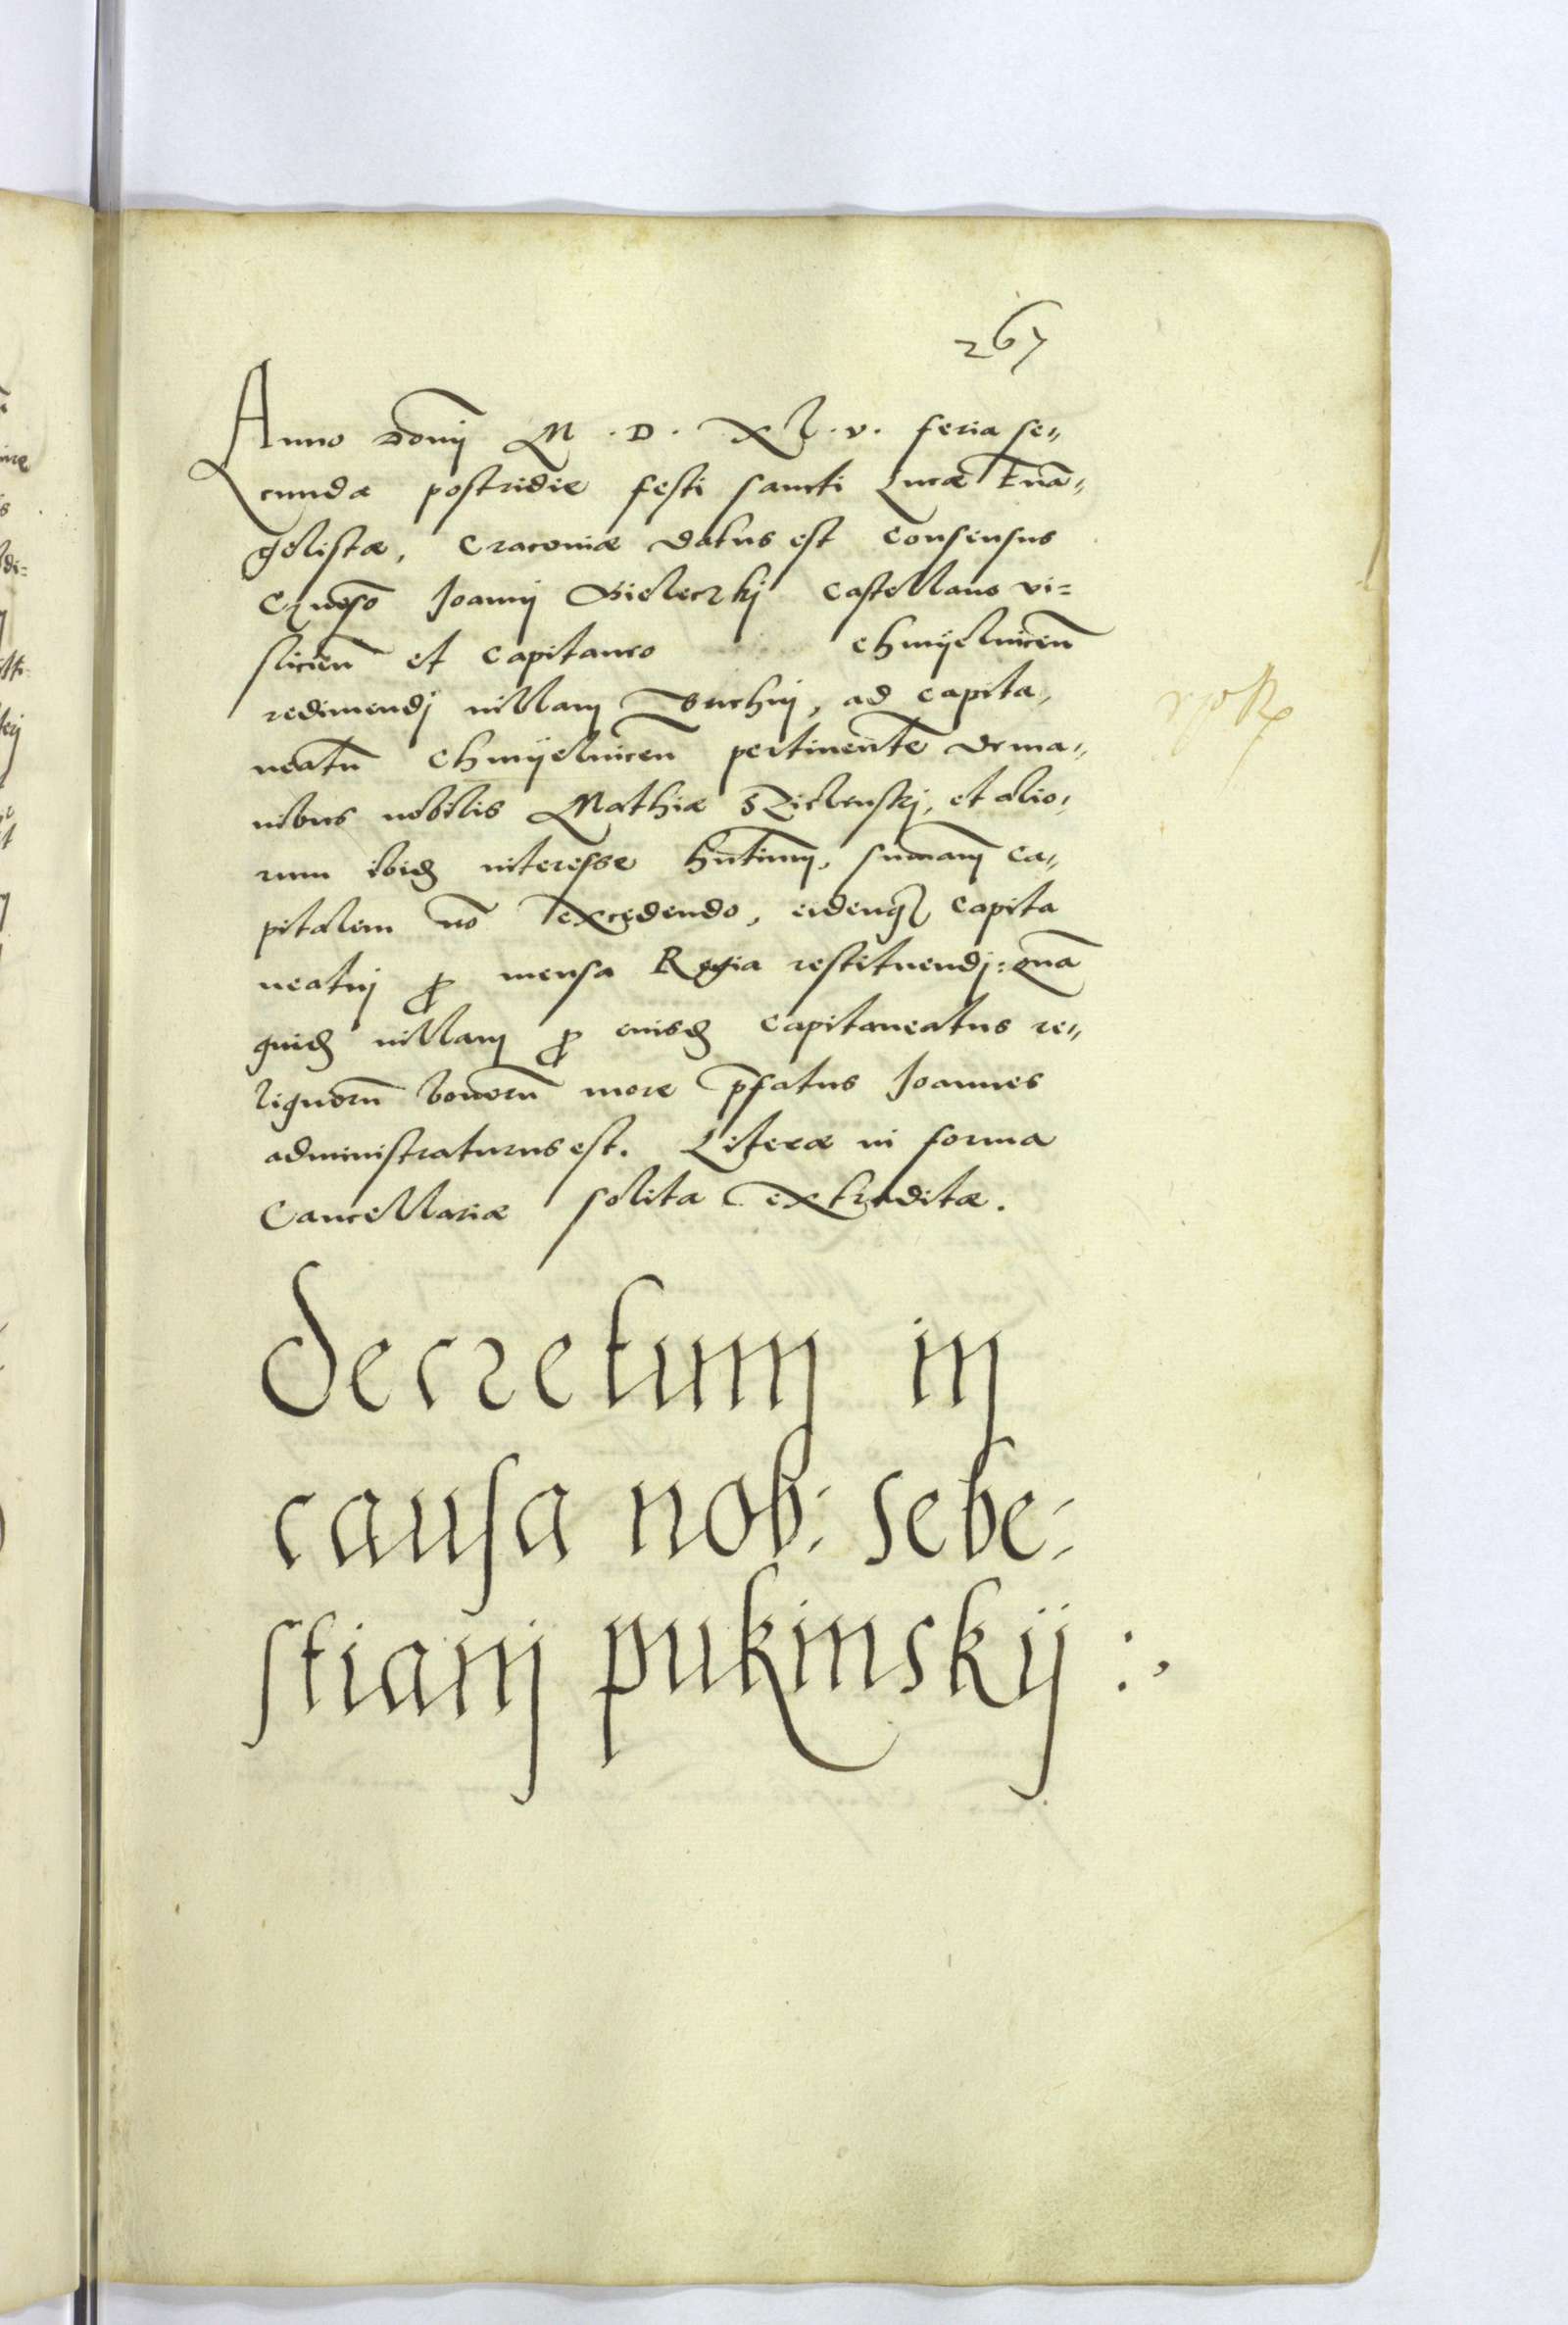 267
Anno domj M.D.XL.v. feria se,,
cunda postridie festi sancti Lucæ Euā,,
gelistæ, Cracoviæ datus est consensus
Joannj Sieleczkj Castellano vi=
slicieñ et Capitaneo chmÿelniceñ
redimendj villam Suchinj, ad Capita,
neatū ChmÿelniceÑ pertinentē de ma,,
nibus nobilis Mathiæ et alio,
rum ibid interesse hñtium, summam ca,,
pitalem nō excedendo, eidemq3 Capita
neatuj ꝓ mensa Regia restituendj: quā
quid villam ꝓ eiusd Capitaneatus re,,
liquorū bonorū more p̄fatus Joannes
administraturus est. Literæ in forma
Cancellariæ solita extraditæ.
Decretum in
causa nob: Sebe:
stianj pukinskij :,